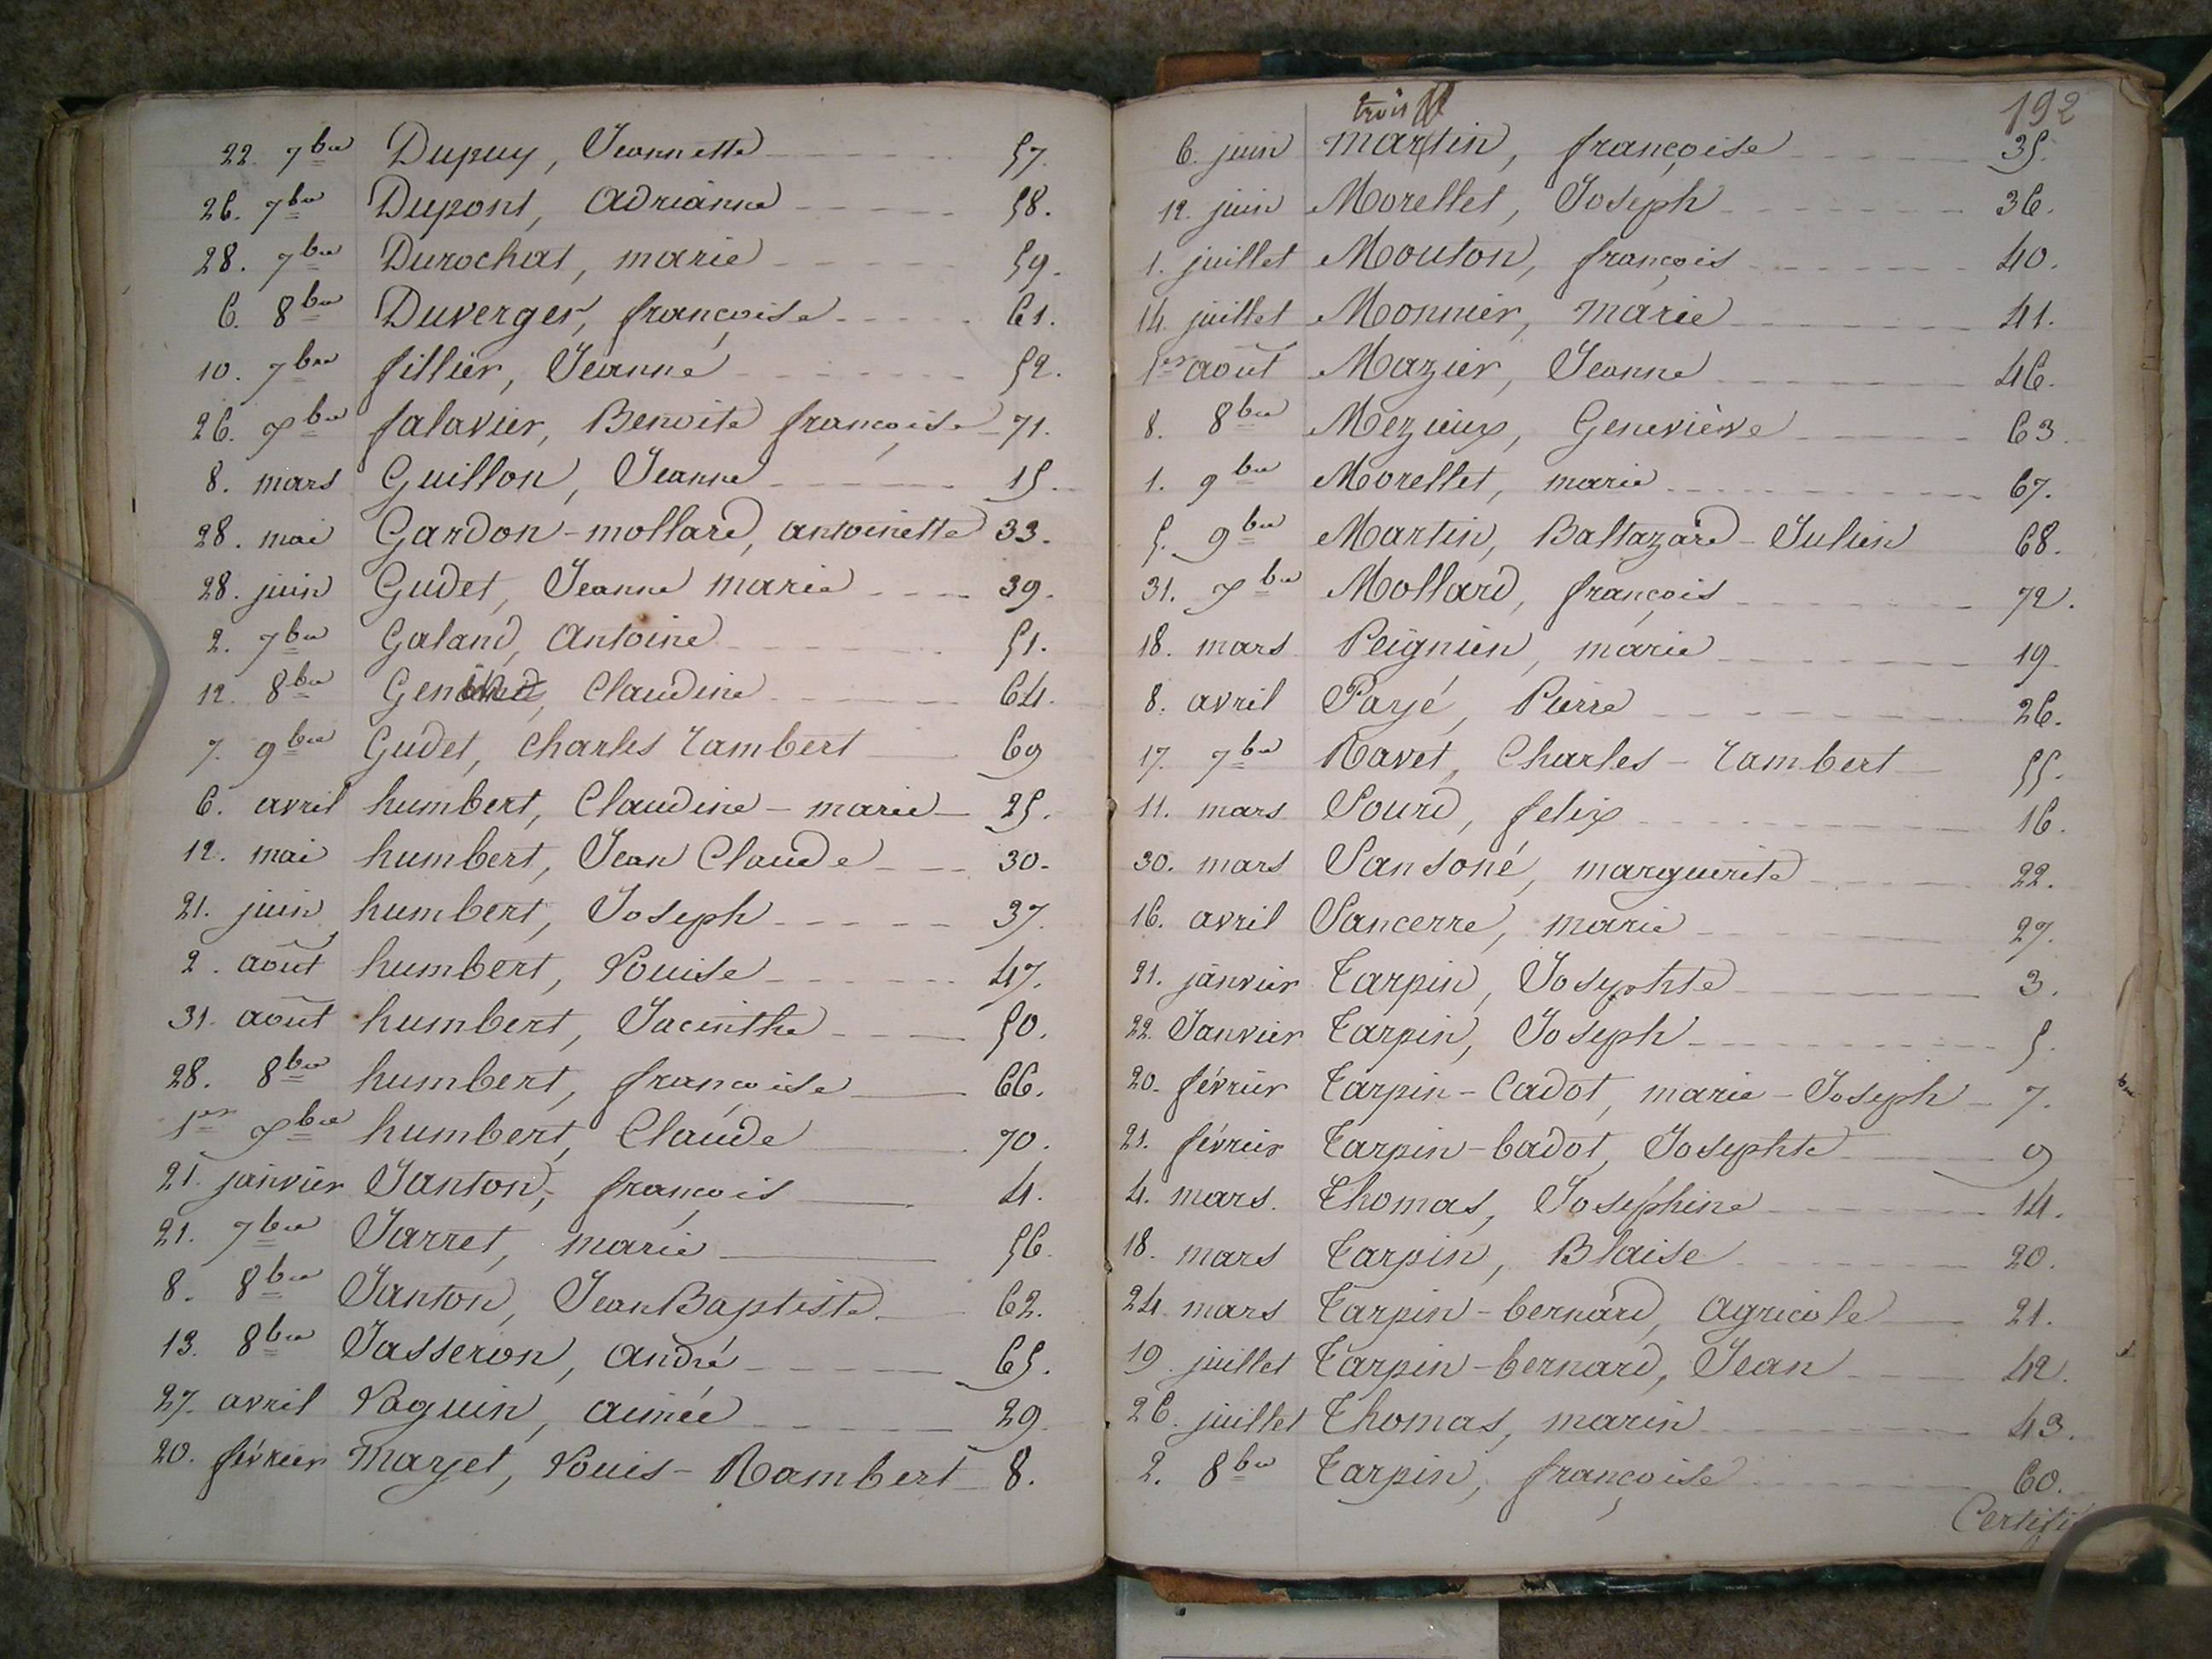 22. 7bre Dupuy, Jeannette 57.
26. 7bre Dupont, Adrianne 58.
28. 7bre Durochat, marie 59.
6. 8bre Duverger, françoise 61.
10. 7bre fillier, Jeanne 52.
26. Xbre falavier, Benoite françoise 71.
8. mars Guillon, Jeanne 15.
28. mai Gardon-mollard, antoinette 33.
28. juin Gudet, Jeanne marie 39.
2. 7bre Galand, Antoine 51.
12. 8bre Claudine 64.
7. 9bre Gudet, Charles Lambert 69
6. avril humbert, Claudine-marie 25.
12. mai humbert, Jean Claude 30.
21. juin humbert, Joseph 37.
2. août humbert, Louise 47.
31. août humbert, Jacinthe 50.
28. 8bre humbert, françoise 66.
1er Xbre humbert, Claude 70.
21. janvier Janton, françois 4.
21. 7bre Jarret, marie 56.
8. 8bre Janton, Jean Baptiste 62.
13. 8bre Jasseron, andré 65.
27. avril Loguin, aimée 29.
20. février Marjet, Louis-Rambert 8.
192
trois
6. juin martin, françoise 35.
12. juin Morellet, Joseph 36.
1. juillet Mouton, françois 40.
14. juillet Monnier, marie 41.
1er août Mazier, Jeanne 46.
8. 8bre Mezieux, Geneviève 63.
1. 9bre Morellet, marie 67.
5. 9bre Martin, Baltazard-Julien 68.
31. Xbre Mollard, françois 72.
18. mars Peignien, marie 19.
8. avril Payé, Pierre 26.
17. 7bre Ravet, Charles-Lambert 55.
11. mars Sourd, felix 16.
30. mars Sansoné, marguerite 22.
16. avril Sancerre, marie 27.
21. janvier Tarpin, Josephte 3.
22. Janvier Tarpin, Joseph 5.
20. février Tarpin-Cadot, marie-Joseph 7.
21. février Tarpin-Cadot, Josephte 9
4. mars. Thomas, Joséphine 14.
18. mars Tarpin, Blaise 20.
24. mars Tarpin-bernard, agricole 21.
19. juillet Tarpin-bernard, Jean 42.
26. juillet Thomas, marin 43.
2. 8bre Tarpin, françoise 60.
Certifié